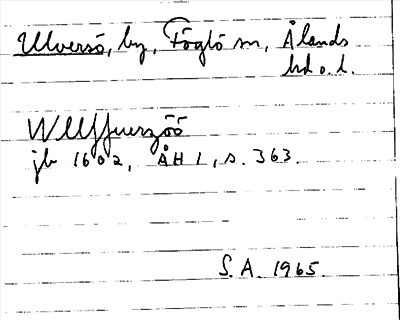 Ulversö, by, Föglö sn, Ålands
hd o. l.
Wllffuerzöö
jb 1602, ÅH 1, s. 363.
S. A. 1965.